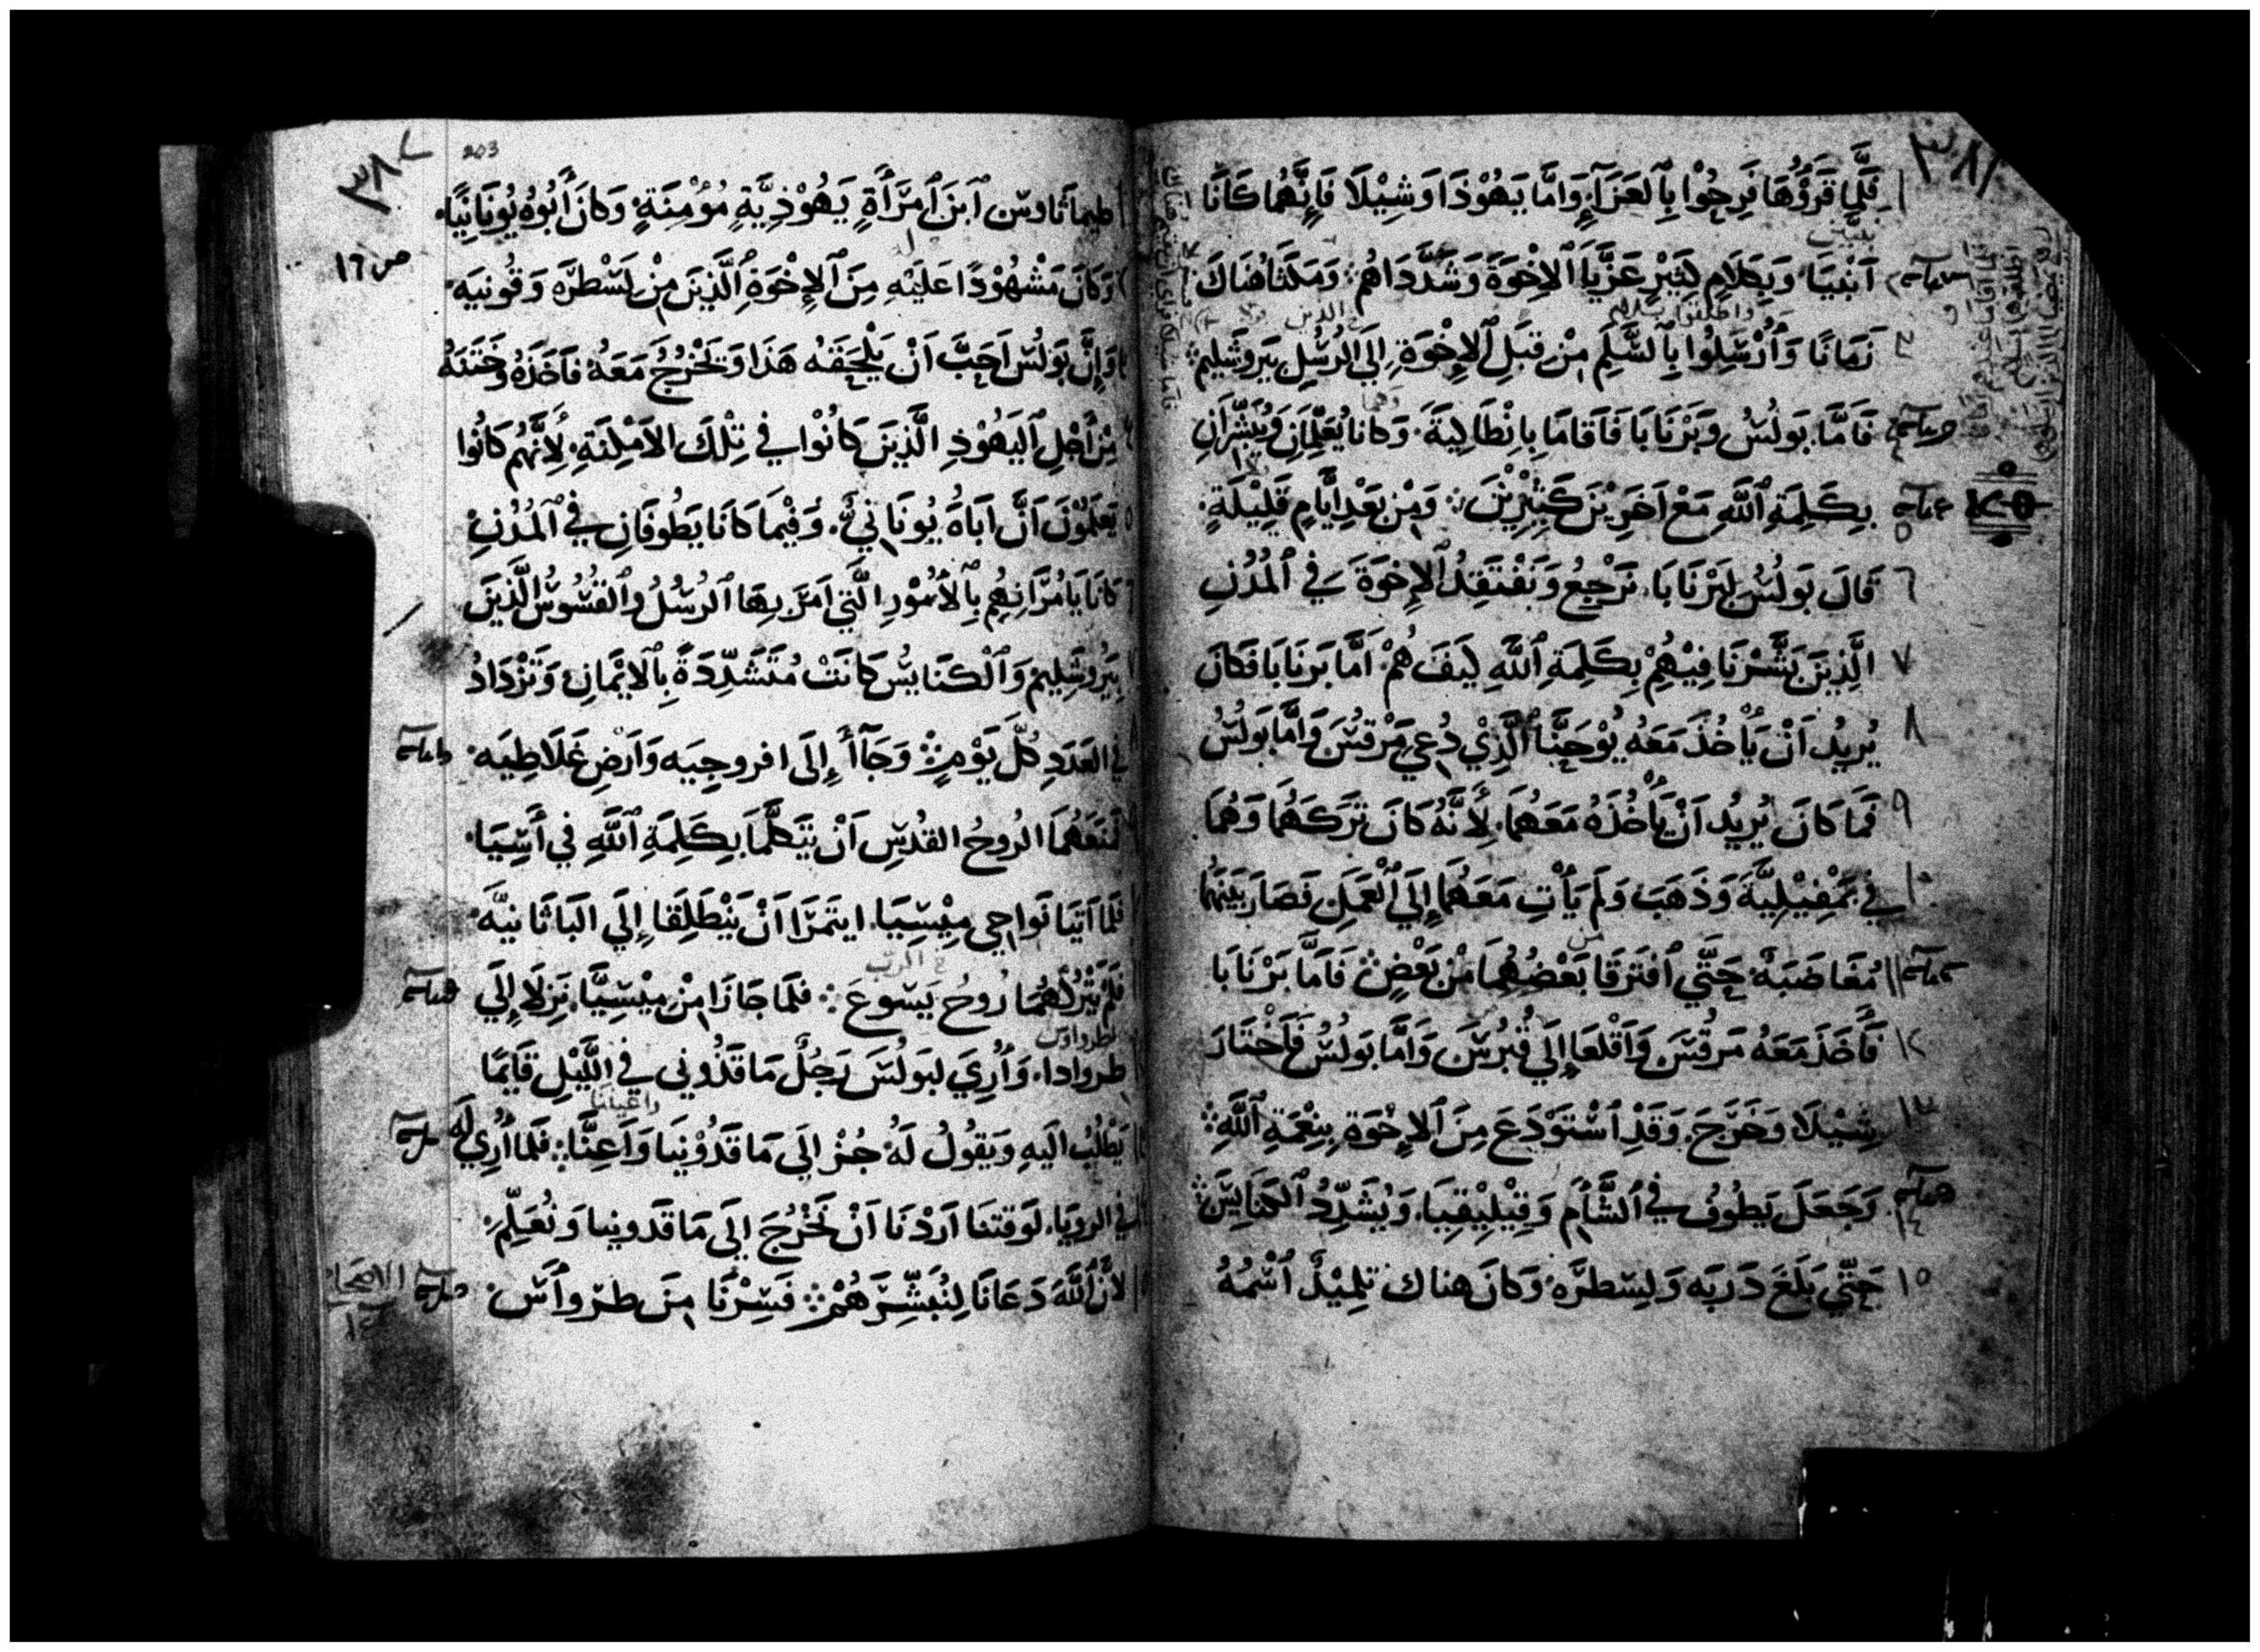 ٣٨١
فَلَمَّا قَرَؤُهَا فَرِحُوْا بِٱلعَزَآءِ وَامَّا يَهُوْذَا وَشِيْلَا فَإِنَّهُمَا كَانَا
آنْبِيَا وَبِكَلَامٍ كَثِيْرٍ عَزَّيَا ٱلاِخْوَةَ وَشَدَّدَاهُمْ وَمَكَثَا هُنَاكَ
زَمَانًا وَٱُرْسِلُوا بِٱلسَّلَمِ مِنْ قِبَلِ ٱلاِخْوَةِ إِلَي الرُسُلِ بِيَروشَلِيم
فَامَّا بَولُسُ وَبَرْنَابَا فَاقَامَا بِانْطَالِيَةَ وَكانا يُعَلِّمَانِ وَيُبَشِّرَانِ
بِكَلِمَةِ ٱللَّهِ مَعْ اَخَرِيْنَ كَثِيْرِيْنَ وَمِنْ بَعْدِ أَيَّامٍ قَلِيْلَةٍ
قَالَ بَولُسُ لِبَرْنَابَا نَرْجِعُ وَنَفْتَقِدُ ٱلاِخوَةَ فِي ٱلمُدُنِ
الَّذِيْنَ بَشَّرْنَا فِيْهِمْ بِكَلِمَةِ ٱللَّهِ كَيفَ هُمْ اَمَّا بَرنَابَا فَكَانَ
يُرِيْدُ اَنْ يَأْخُذَ مَعَهُ يُوْحَنَّا ٱلَّذِيْ دُعِيَ مَرْقُسَ وَامَّا بَولُسُ
فَمَا كَانَ يُرِيْدُ اَنْ يَأْخُذَهُ مَعَهُمَا لأَنَّهُ كَانَ تَرَكَهُمَا وَهُمَا
فِي بَمْفِيْلِيَّةَ وَذَهَبَ وَلَم يَأْتِ مَعَهُمَا إِلَي ٱلعَمَلِ فَصَارَ بَيْنَهُمَا
مُغَاضَبَهٌ حَتَّي ٱفتَرَقَا بَعْضُهُمَا مْنْ بَعْضٍ فَامَّا بَرْنَابَا
فَأَخَذَ مَعَهُ مَرقُسَ وَاَقْلَعَا إِلَي قُبْرُسَ وَامَّا بَولُسُ فَٱخْتَارَ
شِيْلَا وَخَرَجَ وَقَدْ ٱسْتَوْدَعَ مِنَ ٱلاِخْوَةِ بِنِعْمَةِ ٱللَّهِ
وَجَعَلَ يَطُوفُ فِي ٱلشَّأَمِ وَقِيْلِيْقِيَا وَيُشَدِّدُ ٱلكَنَايِسَ
حَتَّي بَلَغَ دَربَه وَلِسطرَه وَكانَ هناك تِلمِيْذٌ ٱسْمُهُ
٣٨٢
203
ص ١٦
طيماثاوس ٱبنَ ٱمرَأَةٍ يَهُوْذِيَّةٍ مُؤْمِنَةٍ وَكانَ أَبُوْهُ يُونَانِيًا
وَكَانَ مَشْهُوْدًا عَلَيْهِ مِنَ ٱلاِخْوَةِ ٱلَّذِينَ مِنْ لِسْطرَه وَقُونِيَه
وَإِنَّ بَولُسَ اَحَبَّ اَنْ يَلْحَقَهُ هَذَا وَتَخْرُجَ مَعَهُ فاَخَذَهُ وَخَتَنَهُ
مِنْ أَجْلِ ٱليَهُوْذِ الَّذِينَ كَانُوْا فِي تِلْكَ الاَمْكِنَةِ لِأَنَّهُم كَانُوا
يَعلَمُوْنَ اَنَّ اَبَاهُ يُونَانِيٌّ وَفِيْمَا كَانَا يَطُوفَانِ فِي ٱلمُدُنِ
كَانَا يَامُرَانِهِم بِٱلاُمُوْرِ الَّتِي اَمَرَ بِهَا ٱلرُسُلُ وٱلقُسُوسُ الَّذِيْنَ
بِيَرُوشَلِيمَ وَٱلْكَنَايِسُ كَانَتْ مُتَشَدِّدَةً بِٱلايْمَانِ وَتَزْدَادُ
فِي العَدَدِ كُلَّ يَوْمٍ وَجَآأَ إِلَى افروجِيَه وَاَرضِ غَلَاطِيَه
فَمَنَعَهُمَا الرُوحُ القُدُسِ اَنْ يَتَكَلَّمَا بِكَلِمَةِ ٱللَّهِ فِي أَسِيَا
فَلَمَا اَتَيَا نَواحِي مِيْسِيَا ايتَمَرَا اَنْ يَنْطَلِقَا إِلَي البَاثَانيَّه
فَلَمْ يَتْرُكْهُمَا رُوحُ يَسوعَ فَلَمَا جَازَا مِنْ مِيْسِيَّا نَزَلَا إِلَي
طروادا وَٱُرِيَ لِبَولُسَ رَجُلٌ مَاقَذُوني فِي اللَّيْلِ قَايِمًا
يَطْلُبُ الَيهِ وَيَقُولُ لَهُ جُزْ الَي مَاقَدُوْنِيَا وَاَعِنَّا فَلَما أُرِيَ لَه
فِي الرويَا لَوَقتِنا اَرَدْنَا اَنْ نَخْرُجَ إِلَى مَاقَدونِيا وَنُعَلِّمَ
لِأَنَّ ٱللَّهَ دَعَانَا لِنُبَشِّرَهُمْ فَسِرْنَا مِنَ طرواَسَ